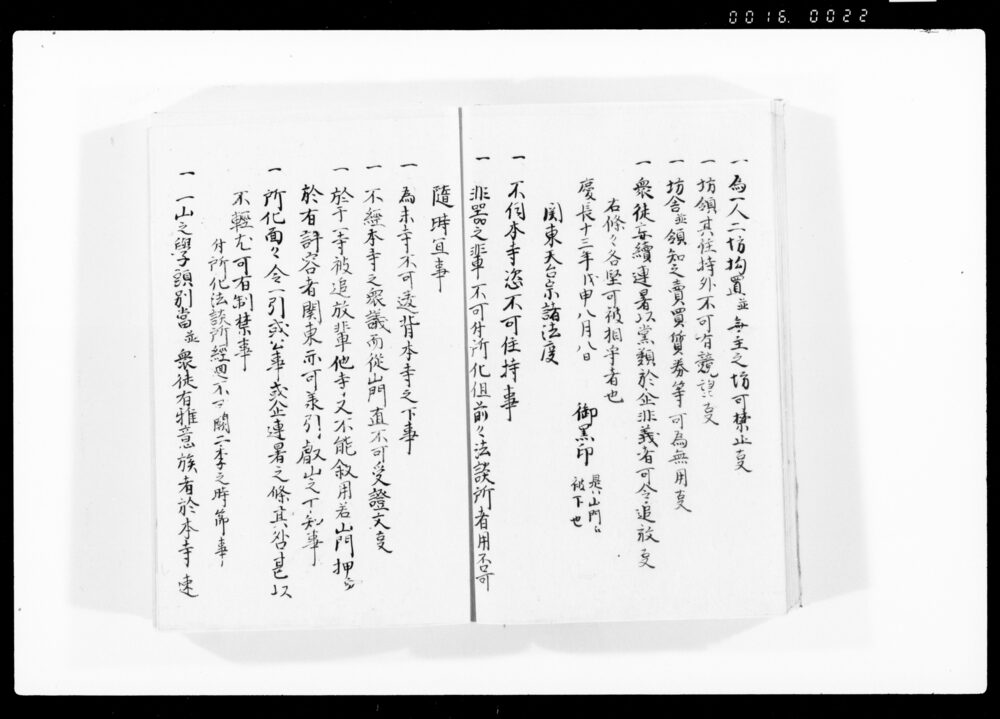 0016. 0022
一 為一人二坊拘置並毎主之坊可禁止叓
一 坊領其住持外不可有競望叓
一 坊舎並領知之賣買質券等可為無用叓
一 衆徒無續連署以黨類於企非義者可令追放叓
右條々各堅可被相守者也
慶長十三年戊申八月八日 御黒印 是ハ山門ニ被下也
関東天台宗諸法度
一 不伺本寺恣不可住持事
一 非器之輩不可付所化但前々法談所者用否可
隨時冝事
一 為末寺不可違背本寺之下事
一 不經本寺之衆議而從山門直不可受證文叓
一 於于一寺被追放輩他寺又不能叙用若山門押而
於有許容者関東亦可兼引叡山之下知事
一 所化面々令一引或公事或企連署之條其咎甚以
不輕尤可有制禁事
付所化法談所經囬不可闕二季之時節事
一 一山之學頭別當並衆徒有雅意族者於本寺速